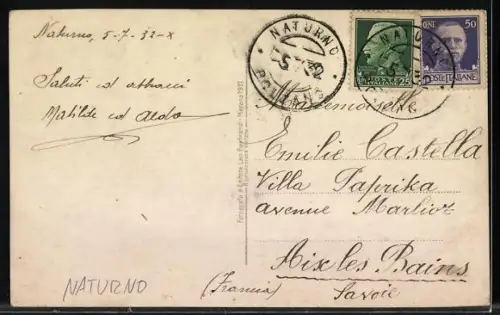 Naturno, 5-7-32-X
Saluti ed abbracci
Matilde ed Aldo
NATURNO
NATURNO
BOLZANO
5 32
25
POSTE ITALIANE
50
NATURNO
Mademoiselle
Emilie Castella
Villa Paprika
avenue Marlioz
Aix les Bains
(Francia) Savoie